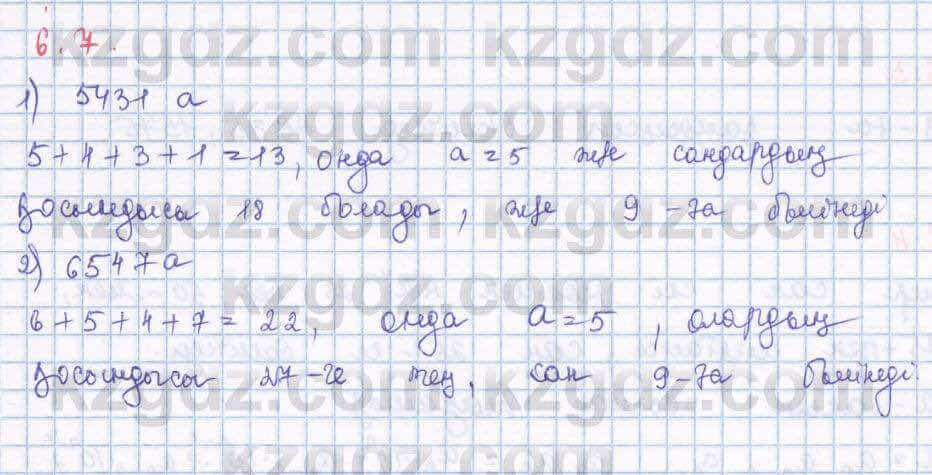 6.7.
1) 5431 а
5+4+3+1=13, онда а=5 және сандардың
қосындысы 18 болады, және 9-ға бөлінеді
2) 6547а
6+5+4+7=22, онда а=5, олардың
қосындысы 27-ге тең, сан 9-ға бөлінеді.
kzgdz.com kzgdz.com
kzgdz.com
kzgdz.com kzgdz.com
kzgdz.com
kzgdz.com kzgdz.com